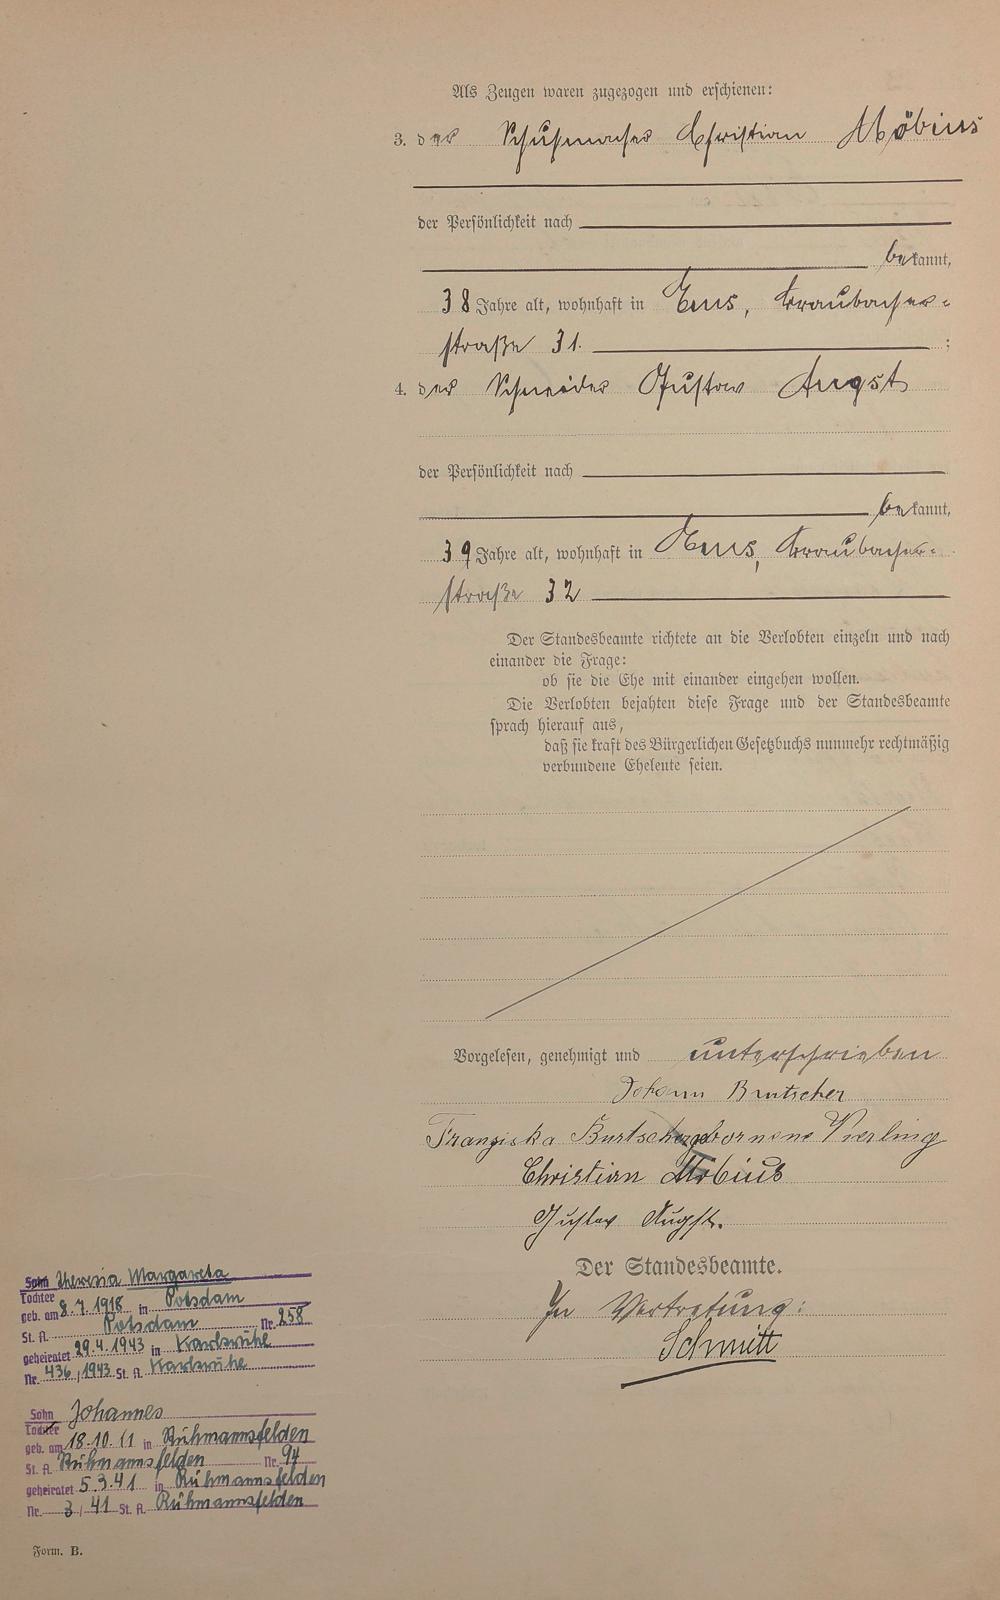 Als Zeugen waren zugezogen und erschienen:
3. der Schuhmacher Christian Möbius
der Persönlichkeit nach
bekannt,
38 Jahre alt, wohnhaft in Ems, Braubacher-
straße 31. ;
4. der Schneider Gustav Angst
der Persönlichkeit nach
bekannt,
39 Jahre alt, wohnhaft in Ems, Braubacher-
straße 32
Der Standesbeamte richtete an die Verlobten einzeln und nach
einander die Frage:
ob sie die Ehe mit einander eingehen wollen.
Die Verlobten bejahten diese Frage und der Standesbeamte
sprach hierauf aus,
daß sie kraft des Bürgerlichen Gesetzbuchs nunmehr rechtmäßig
verbundene Eheleute seien.
Vorgelesen, genehmigt und unterschrieben
Johann Brutscher
Franziska Burtscher gebornene Vierling
Christian Möbius
Gustav Angst.
Der Standesbeamte.
In Vertretung:
Schmitt
Sohn Theresia Margareta
Tochter
geb. am 8.7.1918 in Potsdam
St. A. Potsdam Nr. 258
geheiratet 29.4.1943 in Karlsruhe
Nr. 436/1943 St. A. Karlsruhe
Sohn Johannes
Tochter
geb. am 18.10.11 in Ruhmannsfelden
St. A. Ruhmannsfelden Nr. 94
geheiratet 5.3.41 in Ruhmannsfelden
Nr. 3/41 St. A. Ruhmannsfelden
Form. B.